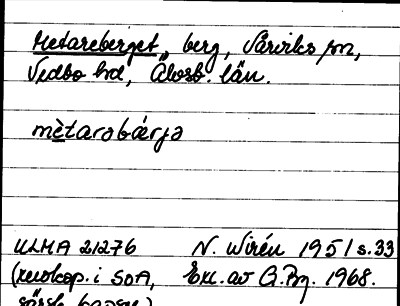 Metareberget, berg, Sårviks sn,
Vedbo hd, Älvsb. län.
mètarəbærja
ULMA 21276 N. Wirén 1951 s. 33
(xerokop. i SOA, Exc. av G.Bg. 1968.
särsk. kapsel)